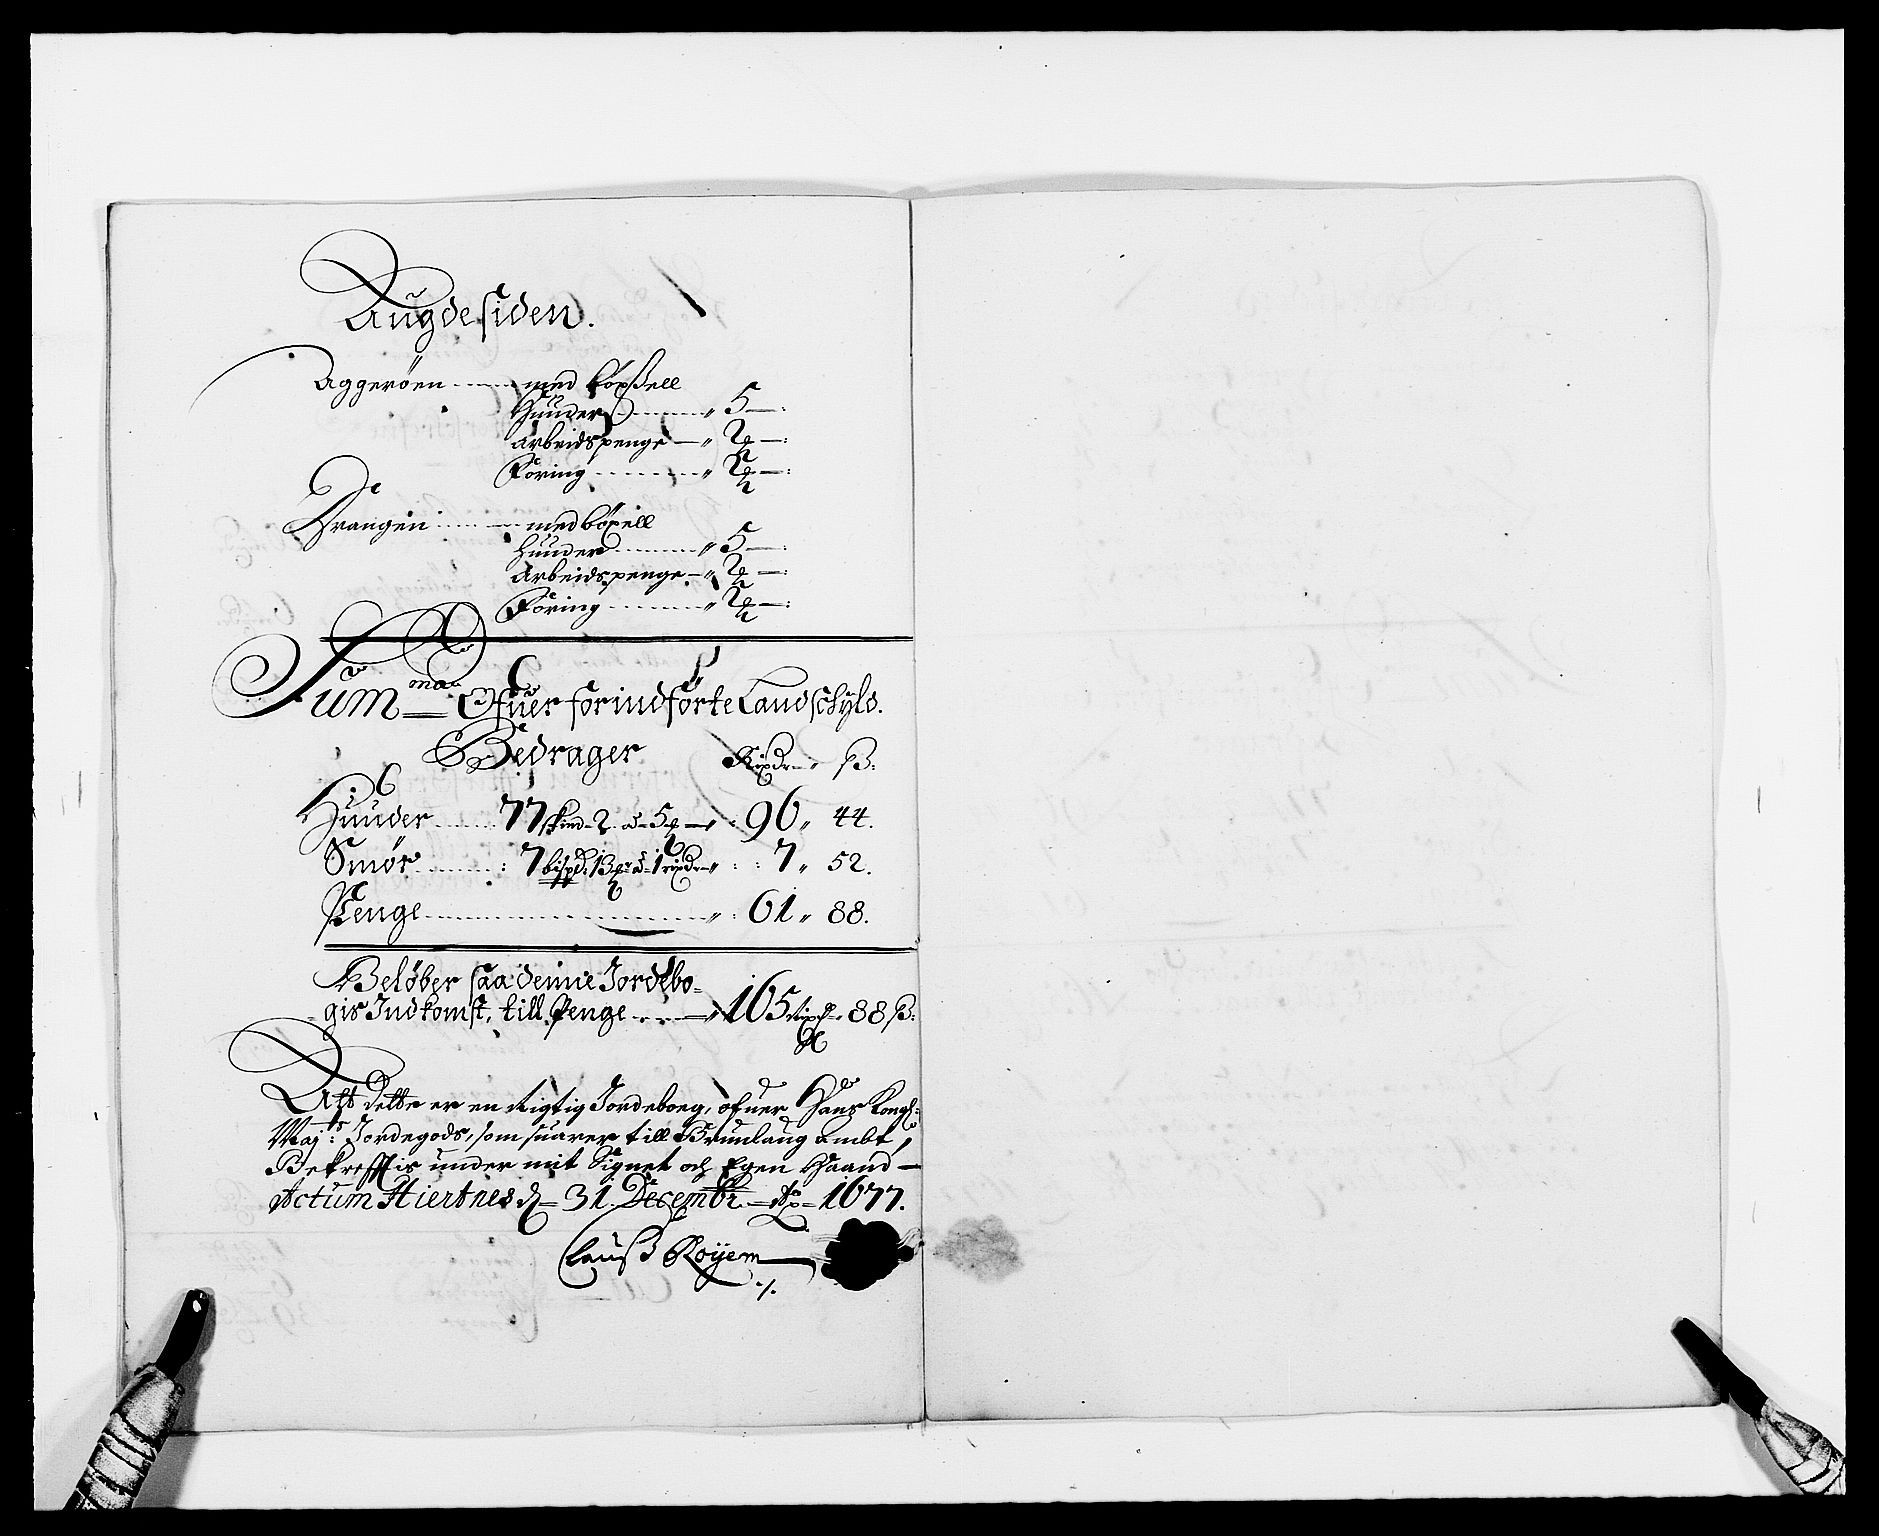 Augdesiden.
Aggerøen ---- med böxsell
Huuder ---- " 5 —:
Arbeidspenge — " 2 —:
Föring ---- " 2 —:
Drangen ---- med böxell
Huuder ---- " 5 —:
Arbeidspenge — " 2 —:
Föring ---- " 2 —:
Summa Ofuer forindförte Landschyld.
Bedrager Rixdr " ß:
Huuder ---- 77 skind 2 a 5 — : 96 " 44.
Smör ---- : 7 bispd: 13 a 1 rixdr " : 7 " 52.
Penge ---- " : 61 " 88.
Beløber saa denne Jordebo-
gis Indkomst, till Penge ---- " 165 Rixd " 88 ß:
Att dette er en Rigtig Jordeboeg, ofuer Hans Kongl:
Maj:ts Jordegods, som suarer till Brunlaug Ambt,
Bekrefftis under mit Signet och Egen Haand —
Actum Hiertnes d — 31. Decembr. — Ao — 1677.
Clauß Röyem